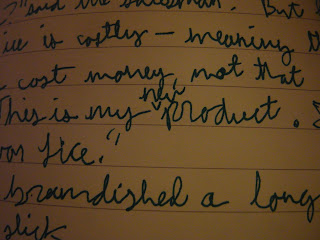 ?" said the salesman. But
ice is costly — meaning
cost money, not that
This is my new product.
brandished a long
slick